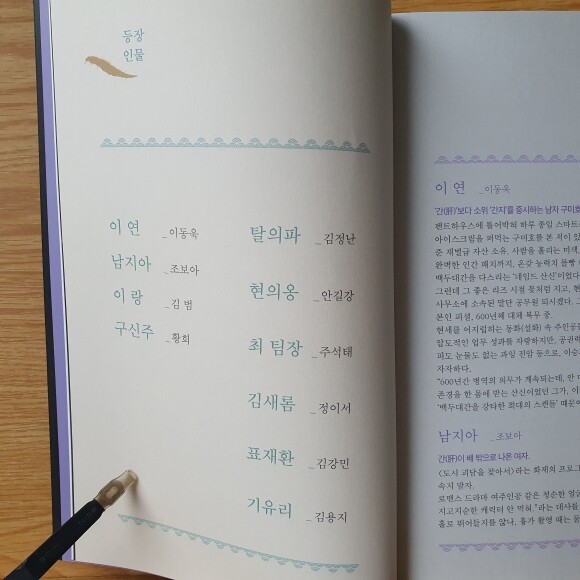 등장
인물
이 연 _이동욱
남지아 _조보아
이 랑 _김 범
구신주 _황희
탈의파 _김정난
현의옹 _안길강
최 팀장 _주석태
김새롬 _정이서
표재환 _김강민
기유리 _김용지
이 연 _이동욱
'간(肝)'보다 소위 '간지'를 중시하는 남자 구미호
펜트하우스에 틀어박혀 하루 종일 스마트
아이스크림을 퍼먹는 구미호를 본 적이 있
준 재벌급 자산 소유, 사람을 홀리는 미색,
완벽한 인간 패치까지, 온갖 능력치 몰빵
백두대간을 다스리는 '네임드 산신'이었다
그런데 그 좋은 리즈 시절 꽃처럼 지고, 현
사무소에 소속된 말단 공무원 되시겠다.
본인 피셜, 600년째 대체 복무 중.
현세를 어지럽히는 동화(설화) 속 주인공들
압도적인 업무 성과를 자랑하지만, 공권력
파도 눈물도 없는 과잉 진압 등으로, 이승
자자하다.
"600년간 병역의 의무가 계속되는데, 안
존경을 한 몸에 받는 산신이었던 그가, 이
'백두대간을 강타한 최대의 스캔들' 때문이
남지아 _조보아
간(肝)이 배 밖으로 나온 여자.
〈도시 괴담을 찾아서〉라는 화제의 프로그
속지 말자.
로맨스 드라마 여주인공 같은 청순한 얼굴
지고지순한 캐릭터 안 먹혀."라는 대사를
홀로 뛰어들지를 않나, 흉가 촬영 때는 몸